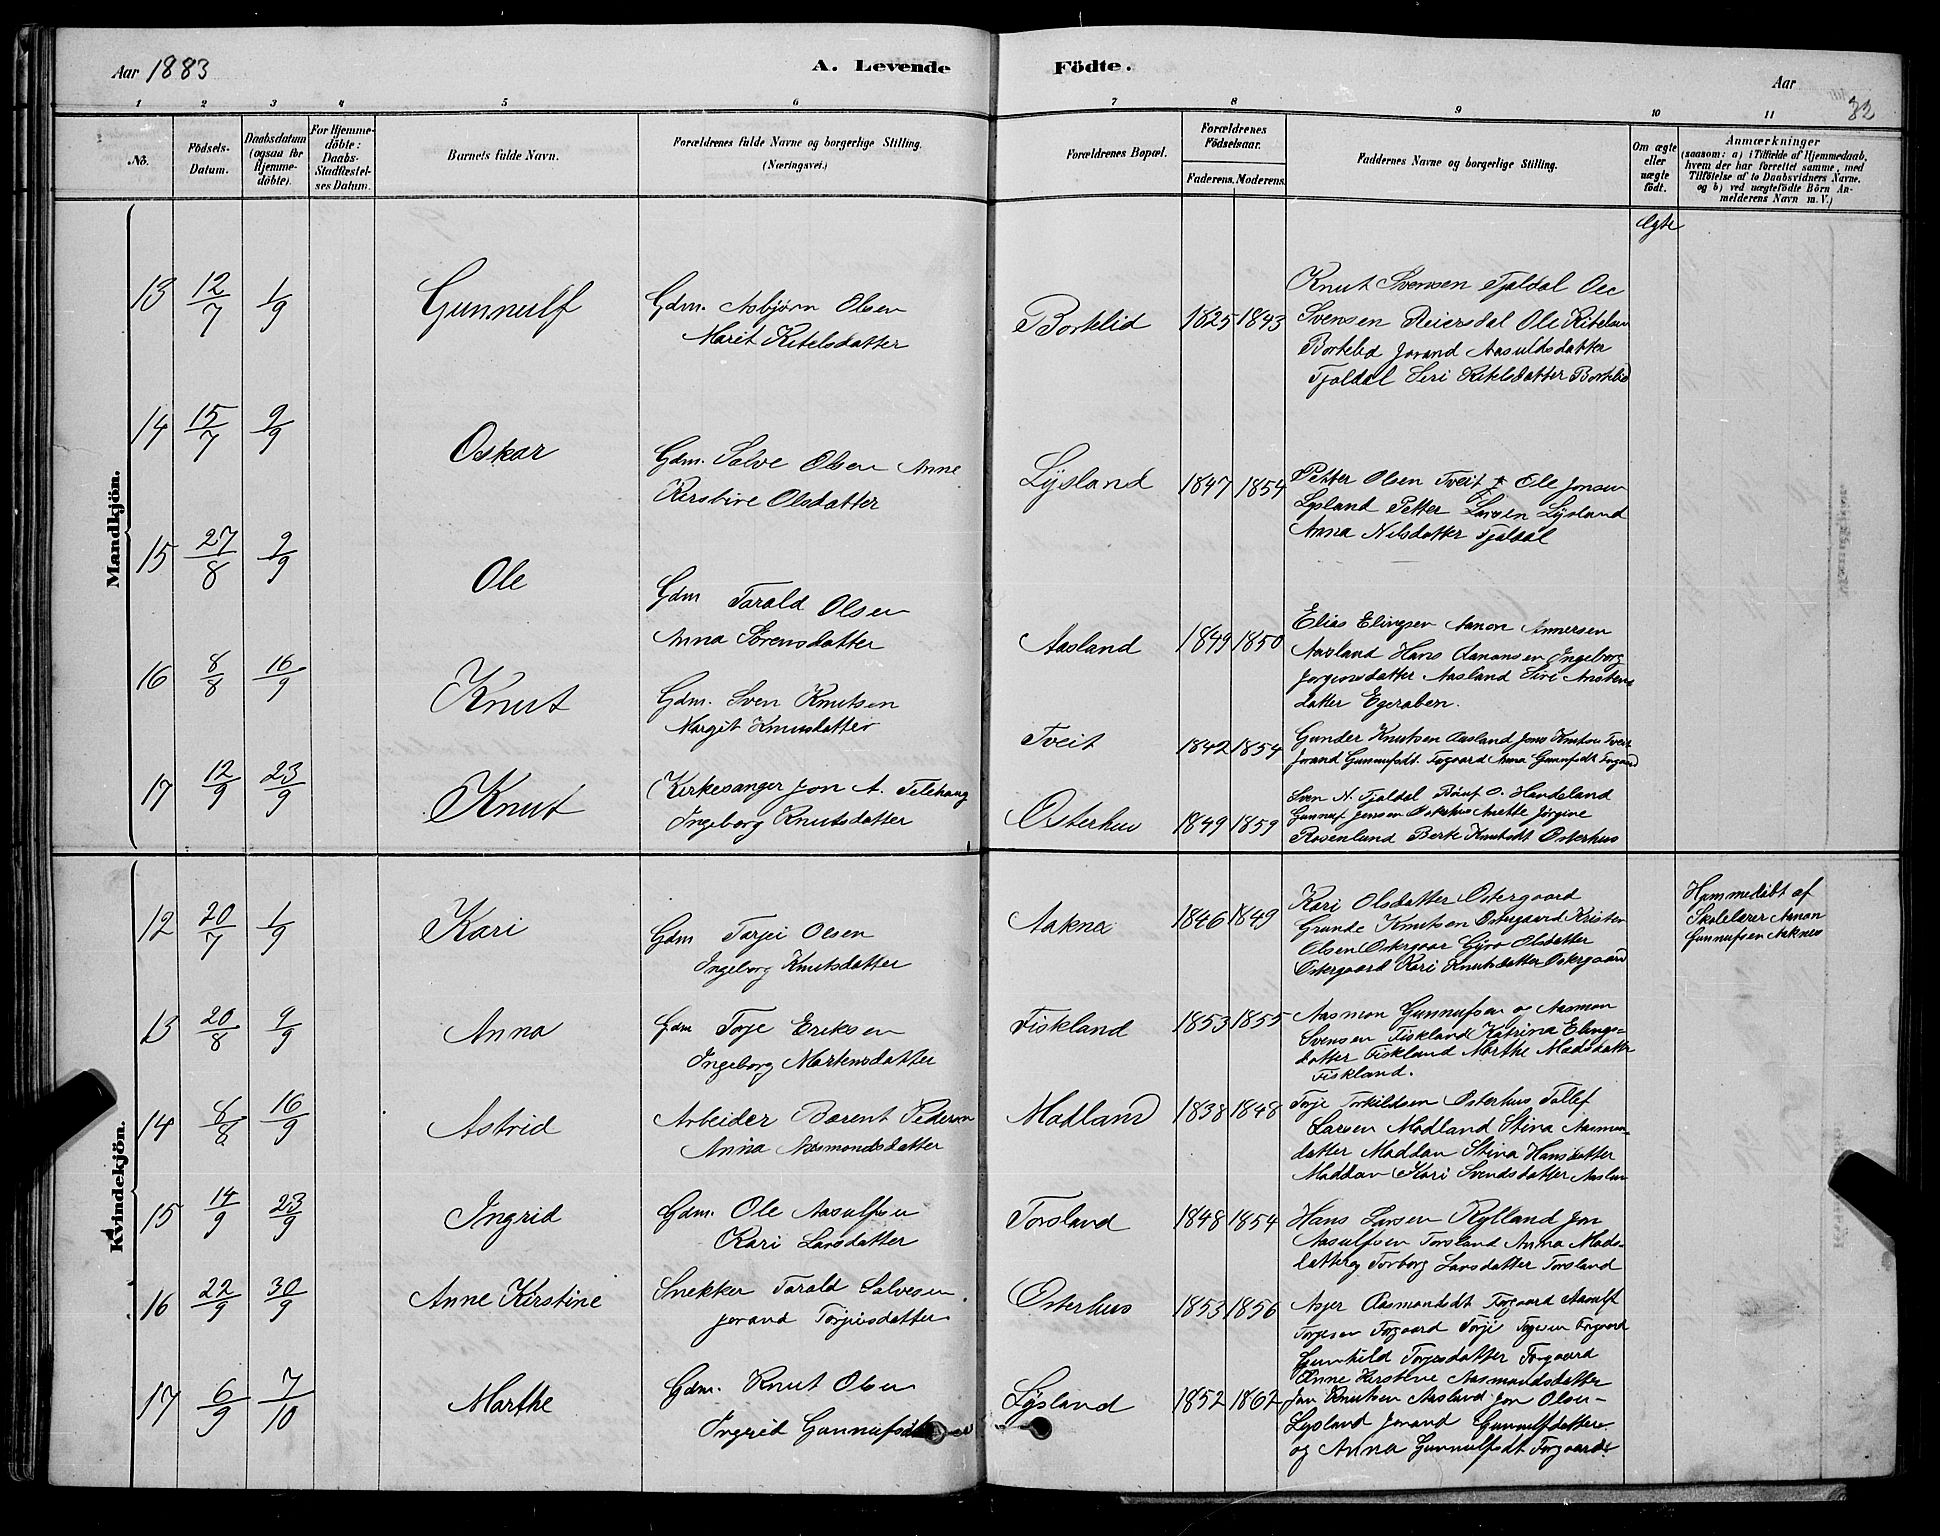 Aar 1883
A. Levende Födte.
Aar
32
1 2 3 4 5 6 7 8 9 10 11
No.
Födsels-Datum.
Daabsdatum (ogsaa for Hjemme-döbte).
For Hjemme-döbte: Daabs-Stadfæstel-ses Datum.
Barnets fulde Navn.
Forældrenes fulde Navne og borgerlige Stilling.
(Næringsvei.)
Forældrenes Bopæl.
Forældrenes Födselsaar.
Faderens. Moderens.
Faddernes Navne og borgerlige Stilling.
Om ægte eller uægte födt.
Anmærkninger
(saasom: a) i Tilfælde af Hjemmedaab,
hvem der har forrettet samme, med
Tilföielse af to Daabsvidners Navne.
og b) ved uægtefödte Börn An-
melderens Navn m. V.)
Mandkjön.
Ægte
13 12/7 1/9 Gunnulf
Gdm. Asbjørn Olsen
Marit Kitelsdatter
Bortelid 1825 1843
Knut Svensen Tjaldal Ole
Svensen Reiersdal Ole Kitelsen
Bortelid Jorand Aasuldsdatter
Tjaldal Siri Kitelsdatter Bortelid
14 15/7 9/9 Oskar
Gdm. Salve Olsen Anne
Kirstine Olsdatter
Lysland 1847 1854
Petter Olsen Tveit Ole Jonsen
Lysland Petter Larsen Lysland
Anna Nilsdatter Tjaldal
15 27/8 9/9 Ole
Gdm Tarald Olsen
Anna Sørensdatter
Aasland 1849 1850
Elias Elingsen Aanon Annersen
Aasland Hans Aanonsen Ingeborg
Jørgensdatter Aasland Siri Anstens
datter Egeraben.
16 8/8 16/9 Knut
Gdm. Sven Knutsen
Margit Knutsdatter
Tveit 1842 1854
Gunder Knutsen Aasland Jens Knutsen Tveit
Jorand Gunnufsdt. Forgaard Anna Gunnufsdt Forgaard
17 12/9 23/9 Knut
Kirkesanger Jon A. Telehaug
Ingeborg Knutsdatter
Osterhus 1849 1859
Sven N. Tjaldal O. Handeland
Gunnuf Jensen Osterhus Anette Jørgine
Rosenlund Berte Knutsdt Osterhus
Kvindekjön.
12 20/7 1/9 Kari
Gdm Tarjei Olsen
Ingeborg Knutsdatter
Aakna 1846 1849
Kari Olsdatter Ostergaard
Grunde Knutsen Ostergaard Kristen
Olsen Ostergaar Gyro Olsdatter
Ostergaard Kari Knutsdatter Ostergaard
Hjemmedøbt af
Skolelærer Aanon
Gunnufsen Aaknes
13 20/8 9/9 Anna
Gdm Torje Eriksen
Ingeborg Martensdatter
Fiskland 1853 1855
Aasmon Gunnufsen og Aasmon
Svensen Fiskland Katrina Elings-
datter Fiskland Marthe Madsdatter
Fiskland.
14 8/8 16/9 Astrid
Arbeider Barent Pederson
Anna Aasmondsdatter
Modland 1838 1848
Torje Torkildsen Osterhus Tollef
Larsen Modland Stina Aasmon-
datter Moddan Stina Hansdatter
Moddan Kari Svendsdatter Aaslan
15 14/9 23/9 Ingrid
Gdm. Ole Aasulfsen
Kari Larsdatter
Torsland 1848 1854
Hans Larsen Rylland Jon
Aasulfsen Torsland Anna Mads-
datter og Torborg Larsdatter Torsland
16 22/9 30/9 Anne Kirstine
Snekker Tarald Salvesen
Jorand Torjusdatter
Osterhus 1853 1856
Asjer Aasmondsdt Forgaard Aasulf
Torjesen Forgaard Torje Torjesen Forgaard
Gunhild Torjesdatter Forgaard
Anne Kirstine Aasmundsdatter
17 6/9 7/10 Marthe
Gdm. Knut Olsen
Ingrid Gunnufsdatter
Lysland 1852 1862
Jon Knutsen Aasland Jon Olsen
Lysland Jorand Gunnulfdatter
og Anna Gunnulfsdt Forgaard